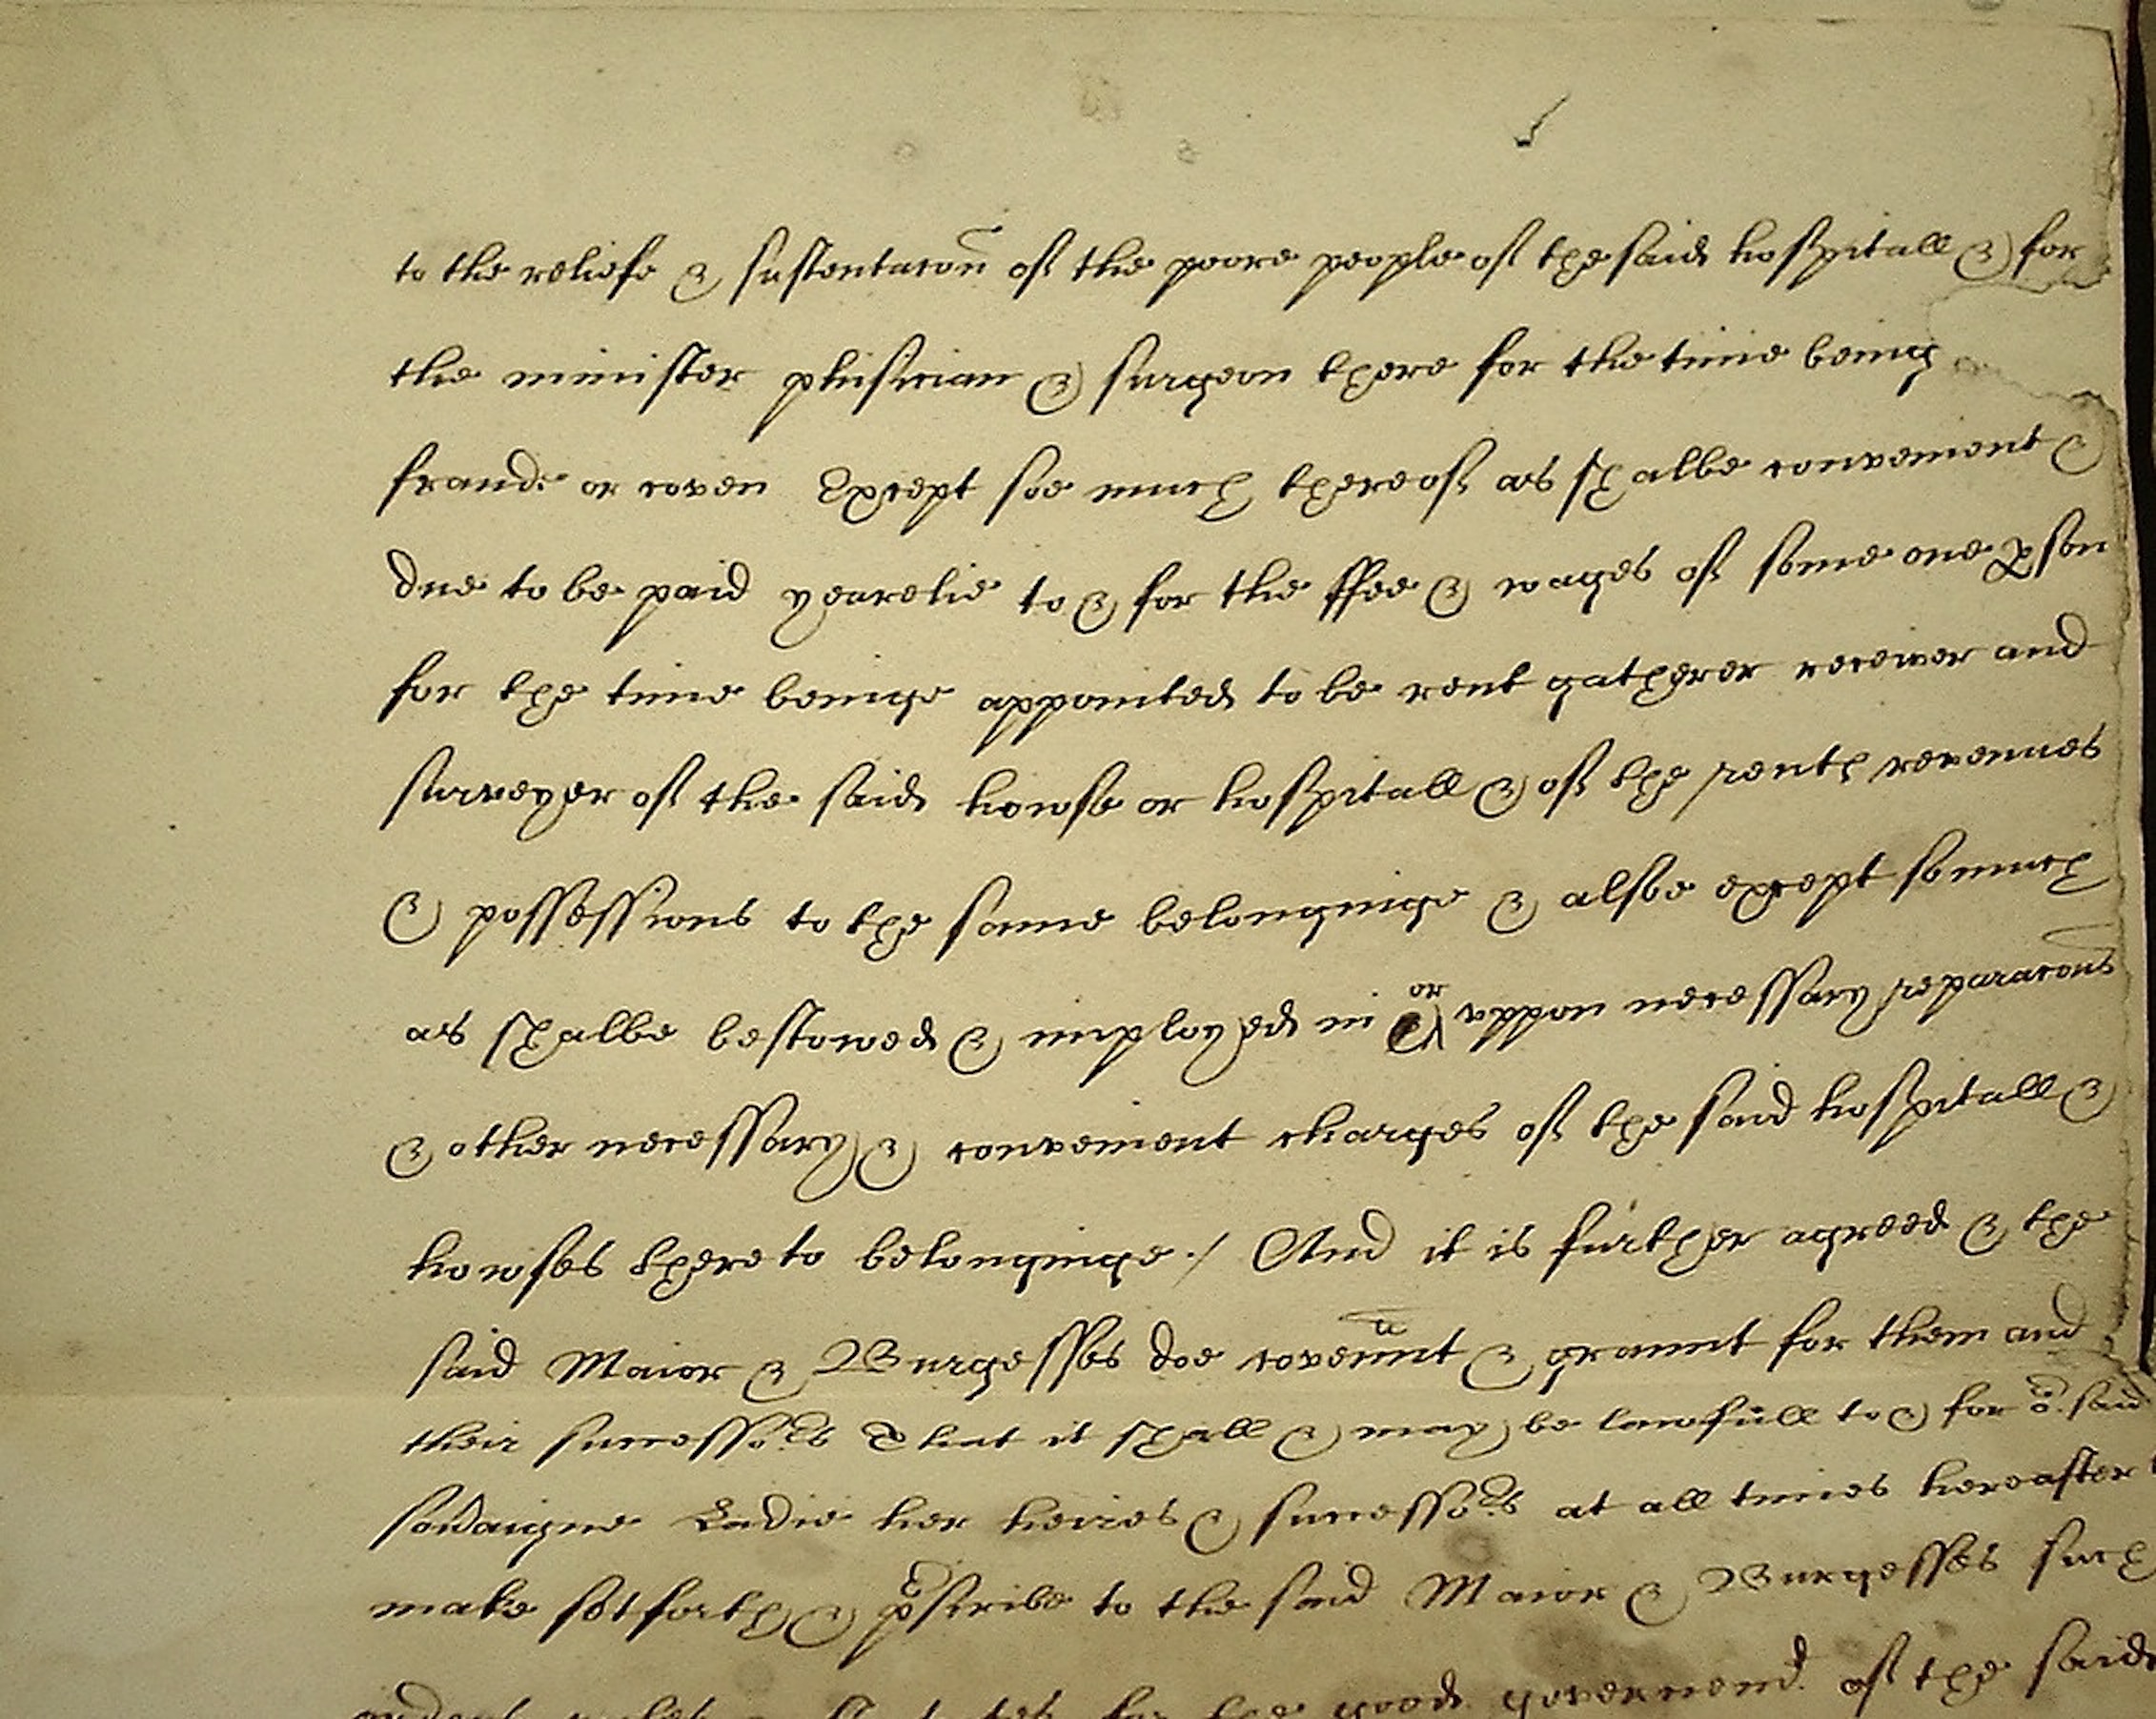 to the reliefe & sustentacōn of the poore people of the said hospitall & for
the minister phisician & surgeon there for the time being
fraude or coven Except soe much thereof as shalbe convenient &
due to be paid yearelie to & for the ffee & wages of some one ꝑson
for the time beinge appointed to be rent gatherer receiver and
surveyer of the said howse or hospitall & of the rents revenues
& possessions to the same belonginge & alsoe except somuch
as shalbe bestowed & imployed in or vppon necessary reparacons
& other necessary & convenient charges of the said hospitall &
howses thereto belonginge ./ And it is further agreed & the
said Maior & Burgesses doe covennt & graunt for them and
their successors That it shall & may be lawfull to & for or said
sovaigne Ladie her heires & successors at all times hereafter
make set forth & pscribe to the said Maior & Burgesses such
for the good governemt of the said